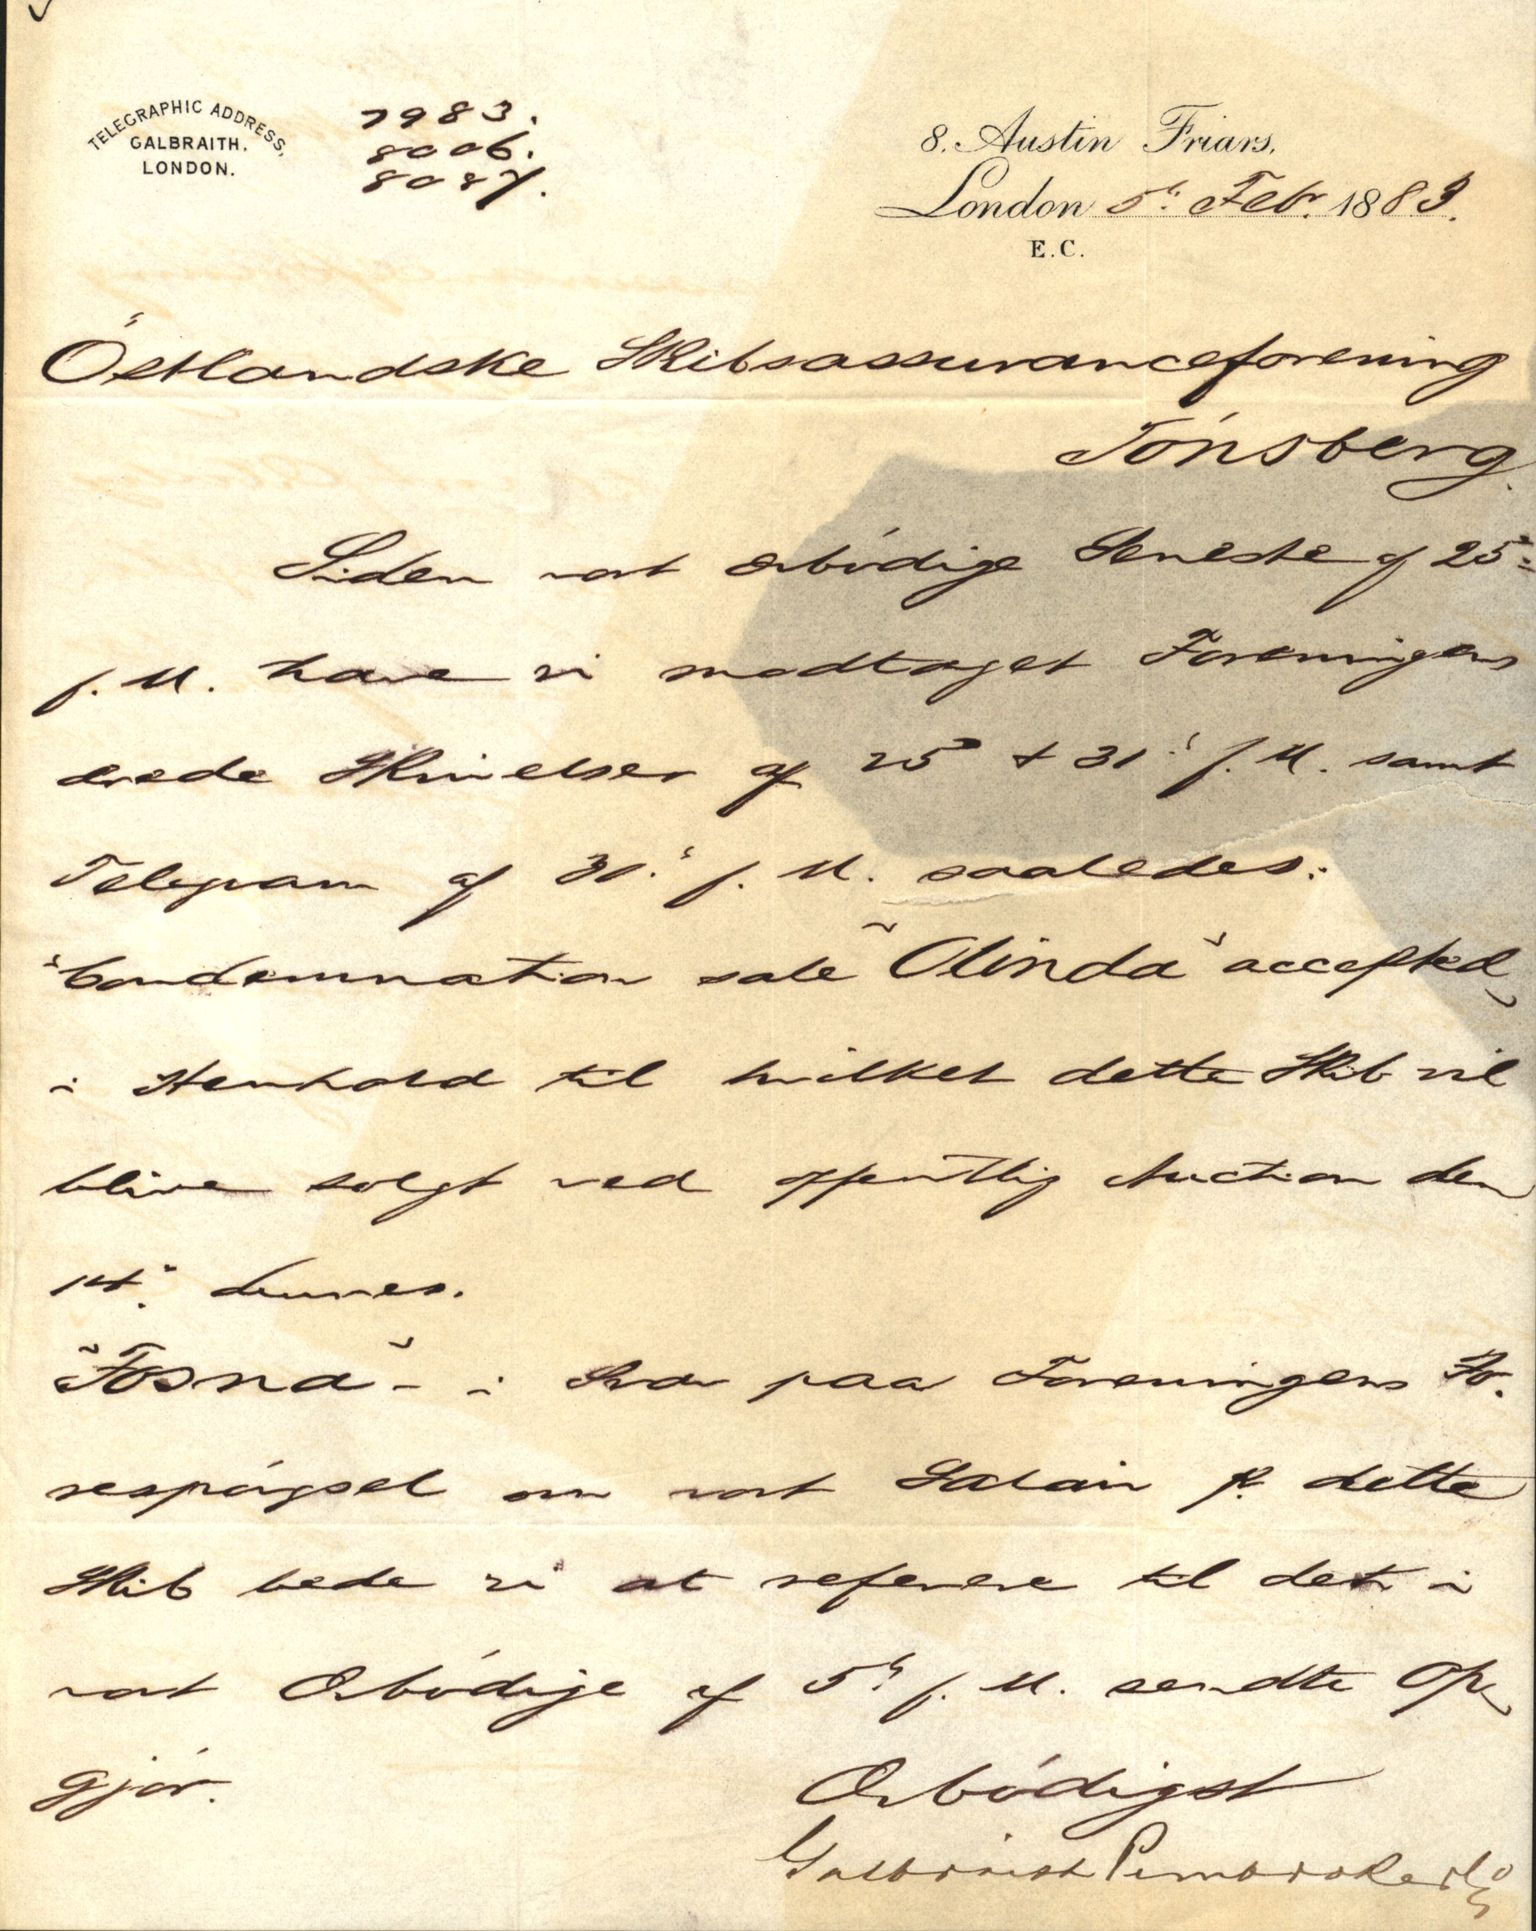 TELEGRAPHIC ADDRESS,
GALBRAITH.
LONDON.
7983.
8006.
8087.
8. Austin Friars,
London 5' Febr. 1883.
E.C.
Östlandske Skibsassuranceforening
Tönsberg.
Siden vort ærbödige Seneste af 25'
f. M. have vi modtaget Foreningens
ærede Skrivelser af 25' & 31' f. M. samt
Telegram af 31' f. M. saaledes:
"Condemnation sale "Olinda" accepted,
i Henhold til hvilket dette Skib vil
blive solgt ved offentlig Auction den
14' dennes.
"Fosna" - i Svar paa Foreningens Fo-
respörgsel om vort Salair p. dette
Skib bede vi at referere til det i
vort Ærbödige af 5' f. M. sendte Op-
gjör.
Ærbödigst
Galbraith Pembroke & Co